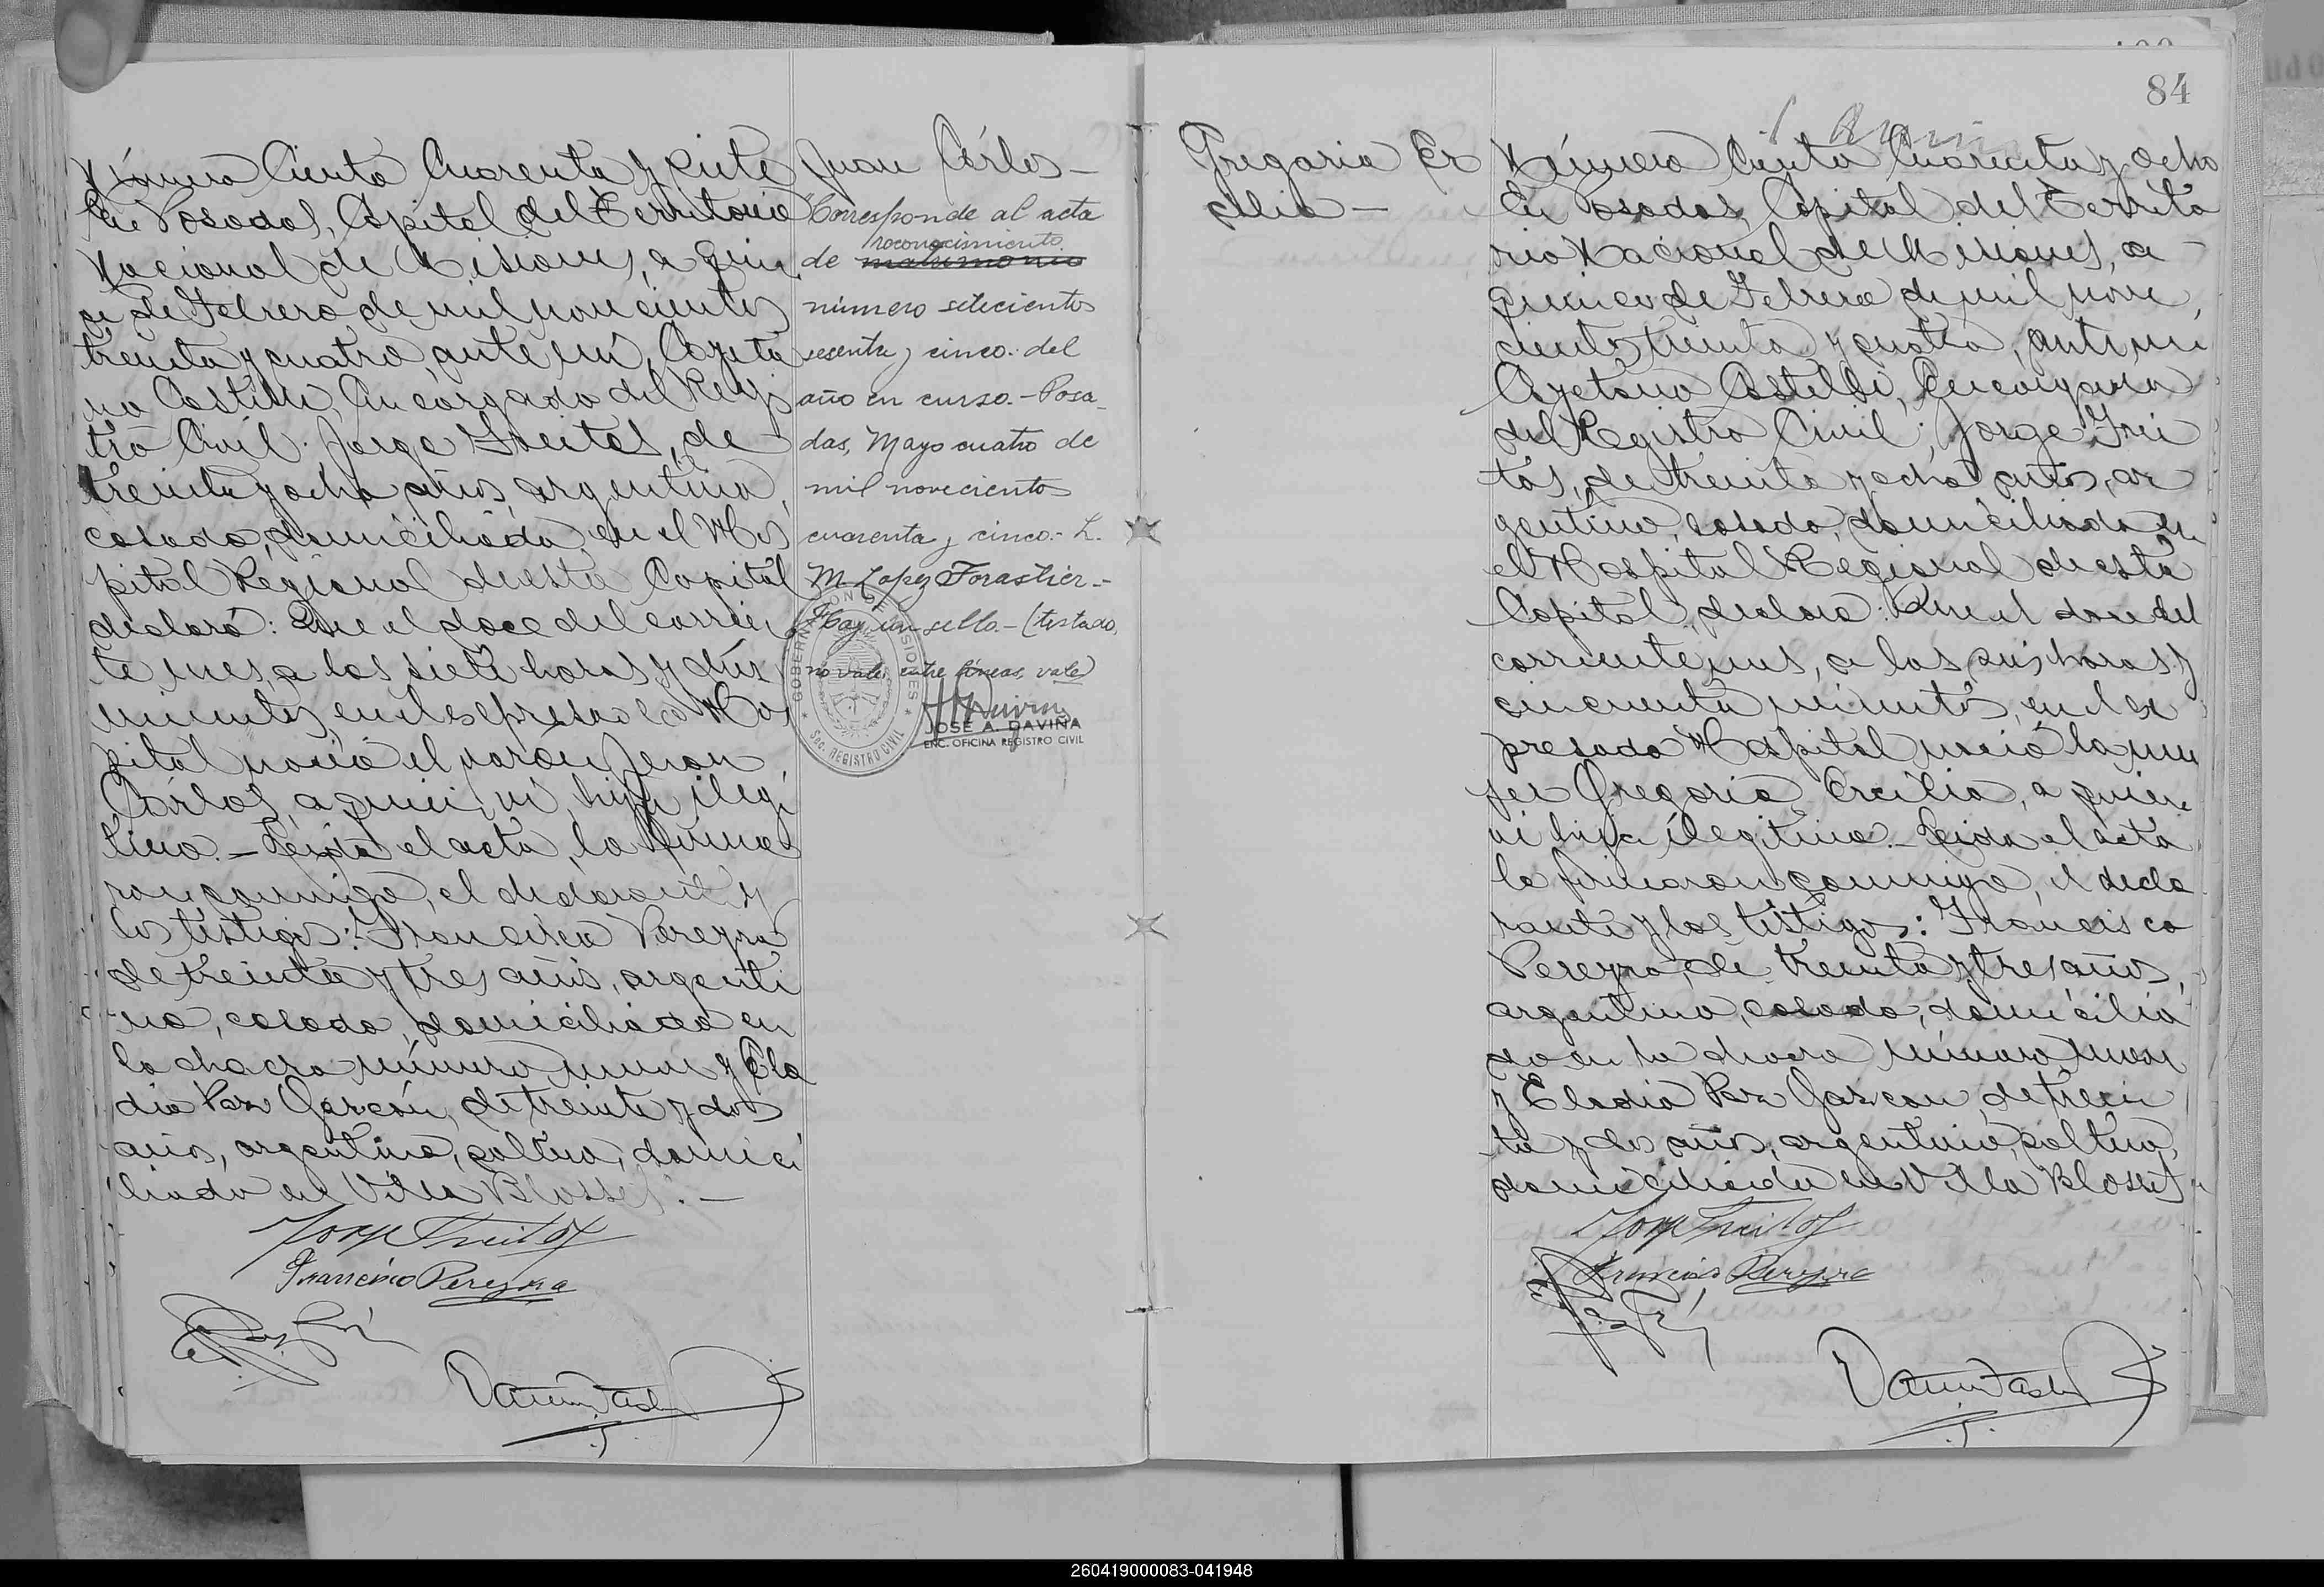 Número Ciento Cuarenta y siete
En Posadas, Capital del Territorio
Nacional de Misiones, a quin
ce de Febrero de mil novecientos
treinta y cuatro, ante mi, Cayeta
no Castelli, Encargado del Regis
tro Civil: Jorge Freitas, de
treinta y ocho años, argentino,
casado, domiciliado en el Hos
pital Regional de esta Capital
declaró: Que el doce del corrien
te mes, a las siete horas y diez
minutos, en el expresado Hos
pital nació el varón Juan
Cárlos, a quien vi, hijo ilegi
timo.- Leida el acta, la firma
ron conmigo, el declarante y
los testigos: Francisco Pereyra
de treinta y tres años, argenti
no, casado, domiciliado en
la chacra número nueve y Ela
dio Paz Garzón, de treinta y dos
años, argentino, soltero, domici
liado en Villa Blosset.-
Jorge Freitas
Francisco Pereyra
Juan Cárlos-
Corresponde al acta
reconocimiento
de matrimonio
número setecientos
sesenta y cinco del
año en curso.- Posa-
das, Mayo cuatro de
mil novecientos
cuarenta y cinco.- L.
M. Lopez Forastier.-
Hay un sello.- (testado,
no vale, entre líneas, vale)
GOBERNACION DE MISIONES
Sec. REGISTRO CIVIL
JOSE A. DAVIÑA
ENC. OFICINA REGISTRO CIVIL
84
Gregoria Er
cilia-
Número Ciento Cuarenta y ocho
En Posadas, Capital del Territo
rio Nacional de Misiones, a
quince de Febrero de mil nove
cientos treinta y cuatro, ante mi
Cayetano Castelli, Encargado
del Registro Civil; Jorge Frei
tas, de treinta y ocho años, ar
gentino, casado, domiciliado en
el Hospital Regional de esta
Capital, declaró: Que el doce del
corriente mes, a las seis horas y
cincuenta minutos, en el ex
presado Hospital nació la mu
jer Gregoria Ercilia, a quien
vi hija ilegitima.- Leida el acta
la firmaron conmigo, el decla
rante y los testigos: Francisco
Pereyra, de treinta y tres años,
argentino, casado, domicilia
do en la chacra número nueve
y Eladio Paz Garzon, de trein
ta y dos años, argentino, soltero,
domiciliado en Villa Blosset
Jorge Freitas
Francisco Pereyra
260419000083-041948